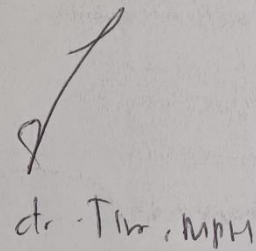 dr. Tim, MPH